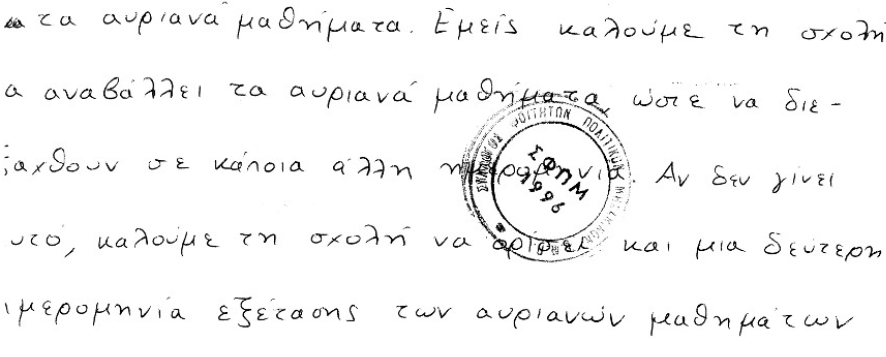 τα αυριανά μαθήματα. Εμείς καλούμε τη σχολή
α αναβάλλει τα αυριανά μαθήματα, ώστε να διε-
ξαχθουν σε κάποια άλλη ημερομηνία. Αν δεν γίνει
υτό, καλούμε τη σχολή να ορίσει και μια δεύτερη
ημερομηνία εξέτασης των αυριανών μαθημάτων
ΣΥΛΛΟΓΟΣ ΦΟΙΤΗΤΩΝ ΠΟΛΙΤΙΚΩΝ ΜΗΧΑΝΙΚΩΝ
ΣΦΠΜ
1996